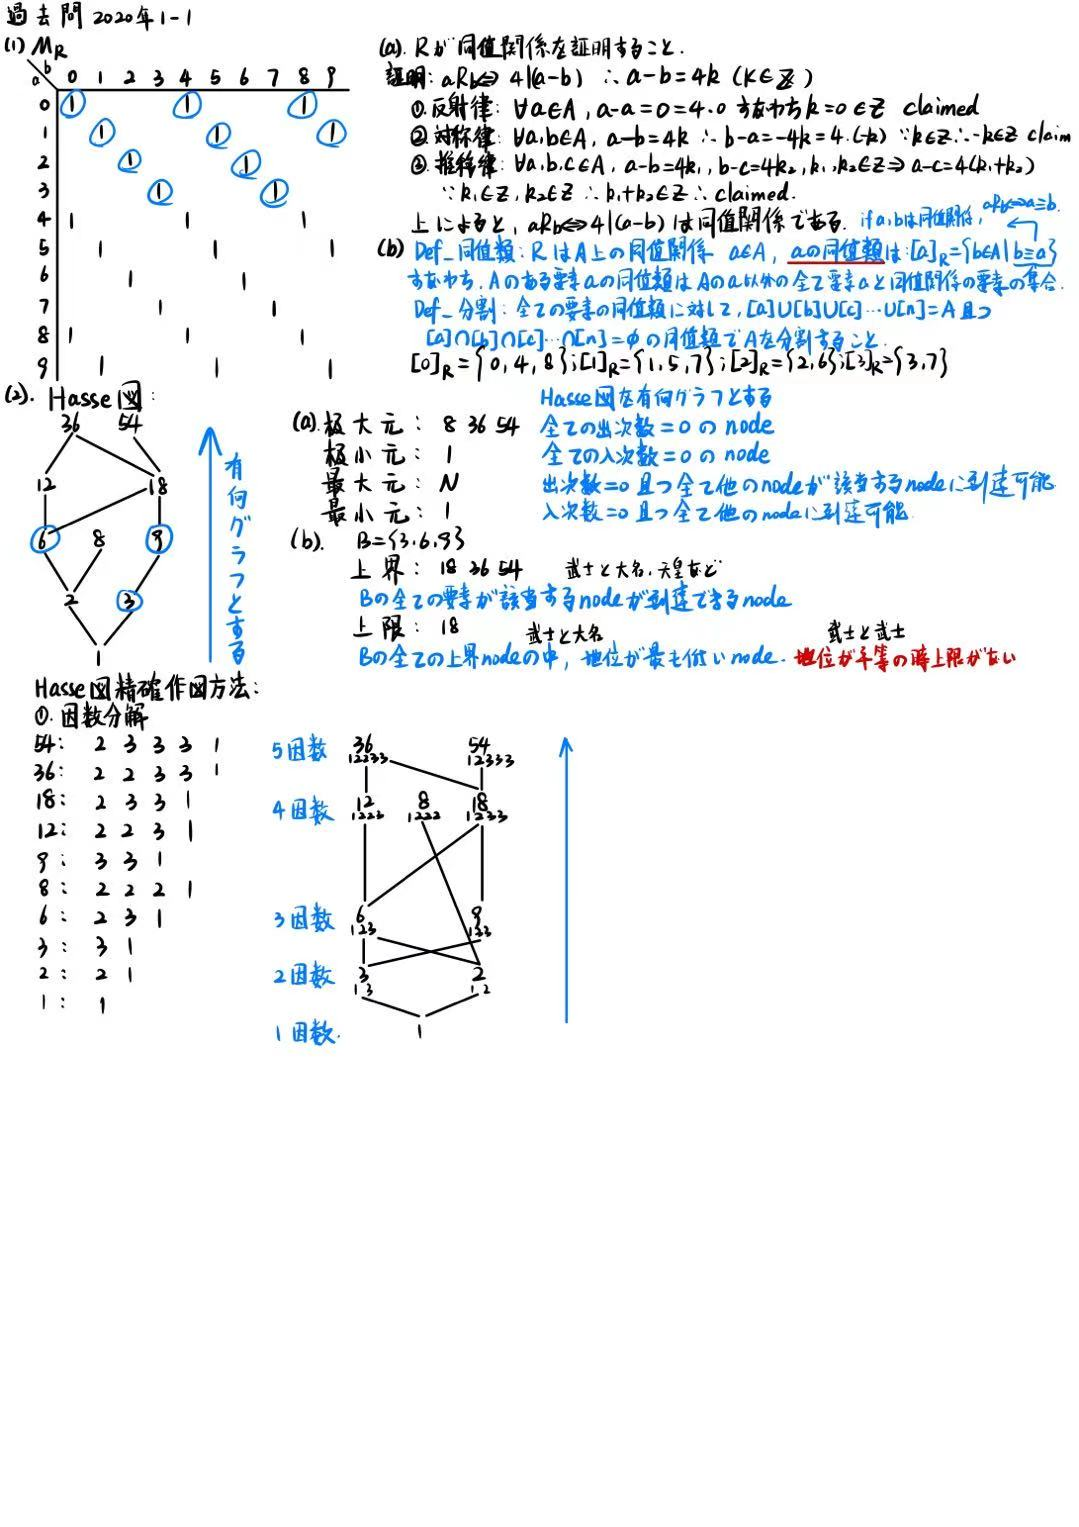 過去問 2020年 1-1
(1) MR
b
a 0 1 2 3 4 5 6 7 8 9
0 1 1 1
1 1 1 1
2 1 1
3 1 1
4 1 1 1
5 1 1 1
6 1 1
7 1 1
8 1 1 1
9 1 1 1
(a). Rが同値関係を証明すること.
証明: aRb⇔ 4|(a-b) ∴ a-b=4k (k∈Z)
①.反射律: ∀a∈A, a-a=0=4·0 すなわち k=0∈Z claimed
②.対称律: ∀a,b∈A, a-b=4k ∴ b-a=-4k=4·(-k) ∵k∈Z∴-k∈Z claim
③.推移律: ∀a,b,c∈A, a-b=4k₁, b-c=4k₂, k₁,k₂∈Z⇒ a-c=4(k₁+k₂)
∵ k₁∈Z, k₂∈Z ∴ k₁+k₂∈Z ∴ claimed.
上によると, aRb⇔4|(a-b) は同値関係である. if a,bは同値関係, aRb⇔a≡b.
(b) Def_同値類: R は A上の同値関係 a∈A, aの同値類は:[a]R={b∈A|b≡a}
すなわち. Aのある要素aの同値類は Aのa以外の全て要素aと同値関係の要素の集合.
Def_分割: 全ての要素の同値類に対して, [a]∪[b]∪[c]…∪[n]=A 且つ
[a]∩[b]∩[c]…∩[n]=φ の同値類でAを分割すること.
[0]R={0,4,8};[1]R={1,5,7};[2]R={2,6};[3]R={3,7}
(2). Hasse図:
36 54
12 18
6 8 9
2 3
1
有向グラフとする
Hasse図を有向グラフとする
(a).极大元: 8 36 54 全ての出次数=0 の node
极小元: 1 全ての入次数=0 の node
最大元: N 出次数=0 且つ全て他のnodeが該当するnodeに到達可能
最小元: 1 入次数=0 且つ全て他のnodeに到達可能
(b). B={3,6,9}
上界: 18 36 54 武士と大名,天皇など
Bの全ての要素が該当するnodeが到達できるnode
上限: 18 武士と大名 武士と武士
Bの全ての上界nodeの中, 地位が最も低いnode. 地位が平等の時上限がない
Hasse図精確作図方法:
①.因数分解
54: 2 3 3 3 1
36: 2 2 3 3 1
18: 2 3 3 1
12: 2 2 3 1
9: 3 3 1
8: 2 2 2 1
6: 2 3 1
3: 3 1
2: 2 1
1: 1
5因数 36 54
12233 12333
4因数 12 8 18
1223 1222 1233
3因数 6 9
123 133
2因数 3 2
13 12
1因数. 1